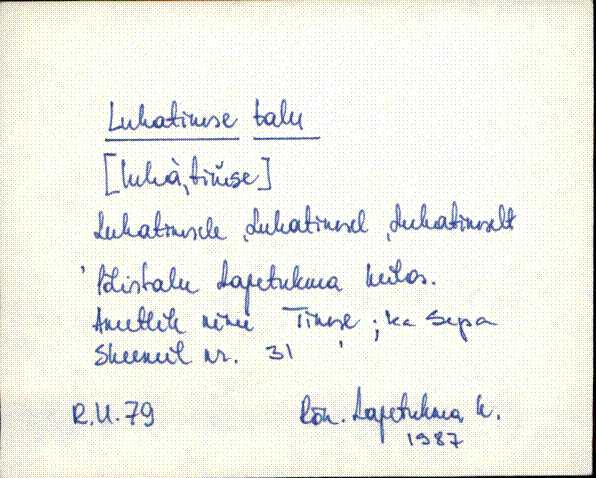 Luhatimse talu
[luhà,tim̆se]
Luhatimsele, Luhatimsel, Luhatimselt
Põlistalu Lapetukma külas.
Ametlik nimi Timse; ka Sepa
Skeemil nr. 31
R.U.79
Rõu. Lapetukma k.
1987